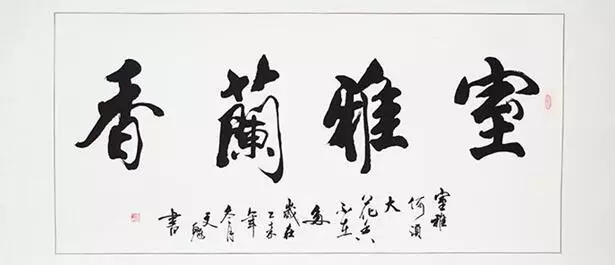 室雅蘭香
室雅
何須
大
花香
不在
多
歲在
乙未
年
冬月
書